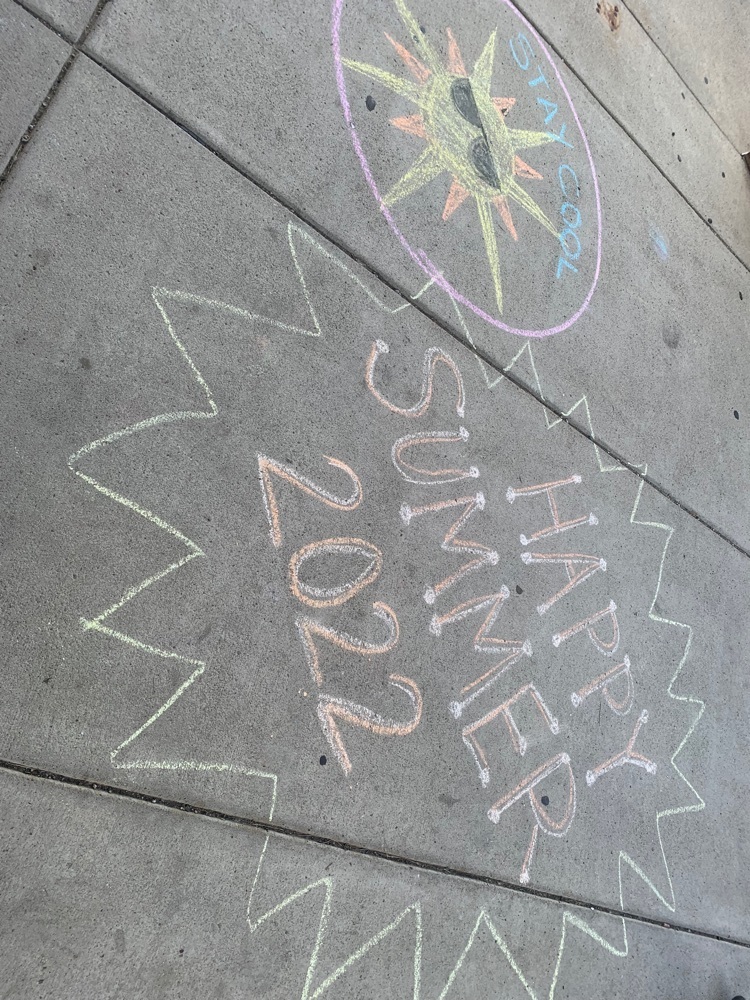 STAY COOL
HAPPY
SUMMER
2022